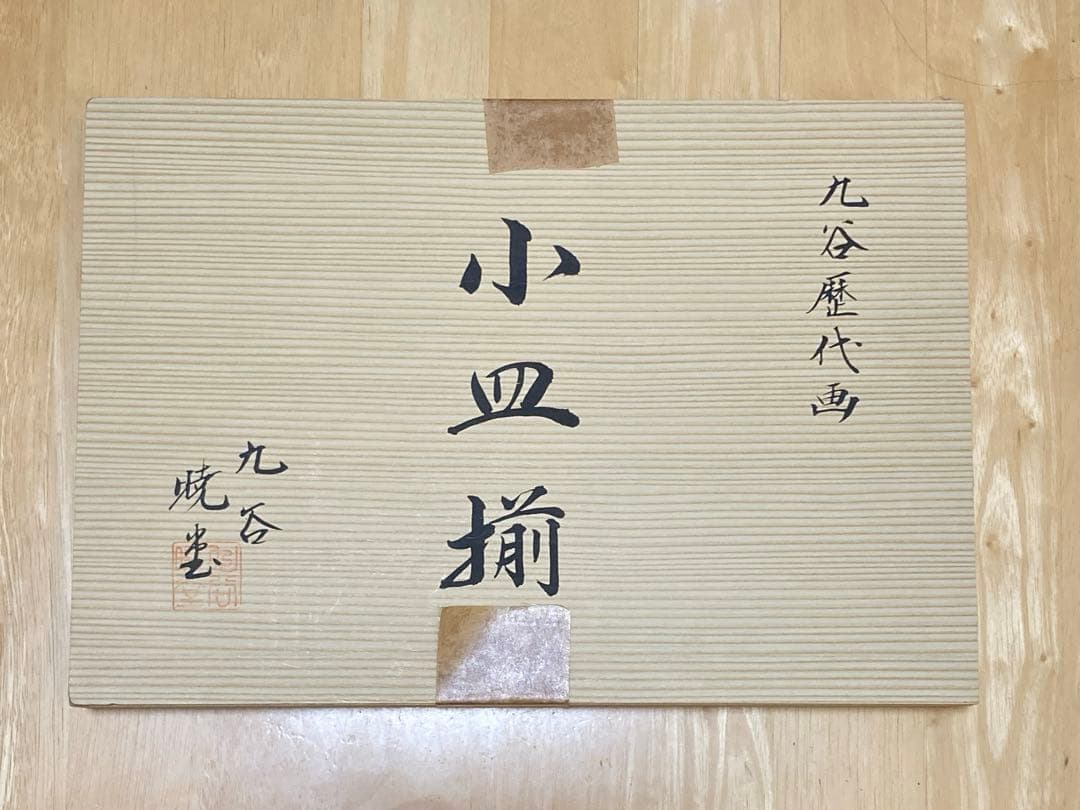 九谷歴代画
小皿揃
九谷
暁堂